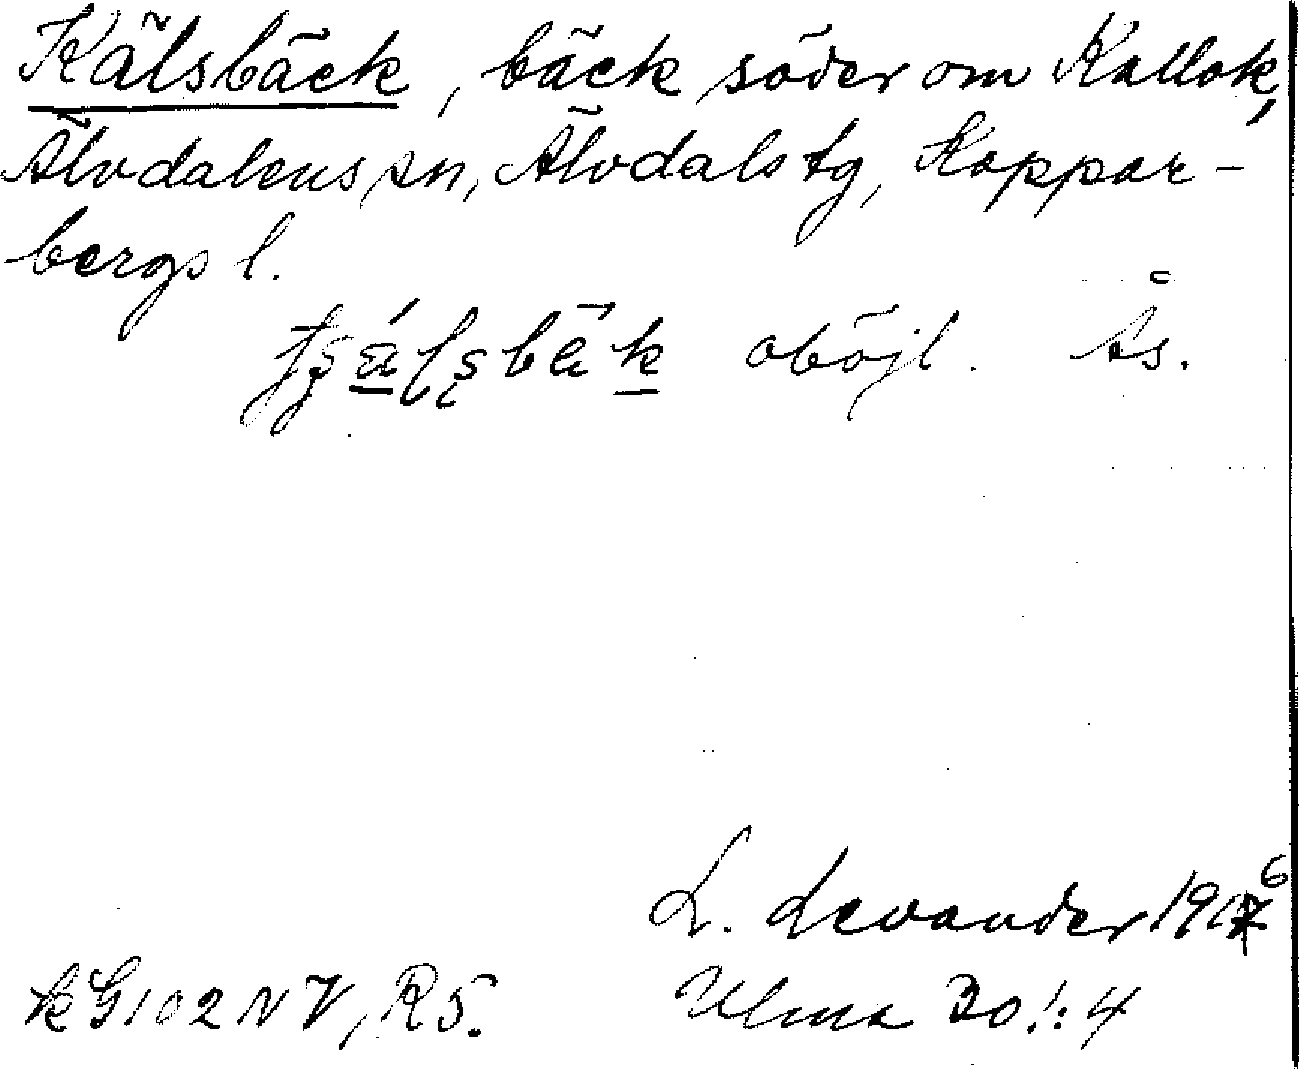 Kälsbäck, bäck söder om Kallok,
Älvdalens sn, Älvdals tg, Koppar-
bergs l.
oböjl. Ås.
L. Levander 1916
kG102NV, R5.
Ulma 20:4